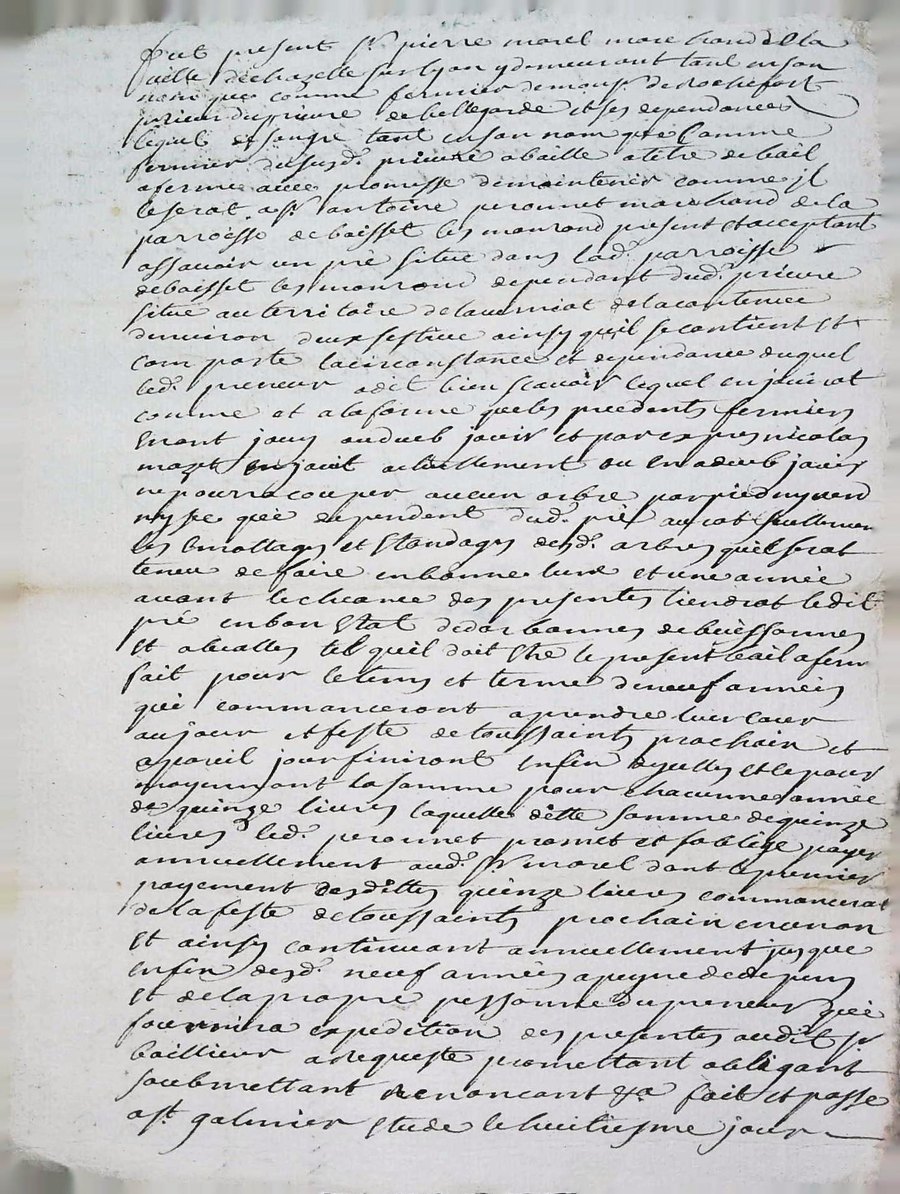 fut present sr pierre morel marchand de la
ville de chazelle sur lyon y demeurant tant en son
nom que comme fermier de monsr de rochefort
prieur du prieure de bellegarde et ses dependances
lequel de son gre tant en son nom que comme
fermier du susd. prieuré a baille a titre de bail
a ferme avec promesse de maintenir comme jl
le serat a sr antoine peronnet marchand de la
parroesse de boisset les monrond present et acceptant
assavoir un pré situé dans lad. parroisse
de boisset les monrond dependant dud. prieure
situé au territoire de la de la contenee
denviron deux sestive ainsy quil se contient et
comporte la circonstance et dependance duquel
led. preneur a dit bien scavoir lequel en jouirat
comme et a la forme que les precedents fermiers
en ont jouy ou dueb jouir et par expres nicolas
mazet en jouit actuellement ou en a dueb jouir
ne pourra couper aucun arbre par pied ny verd
ny sec que dependent dud. pré aurat seullemen
les emottages et elandages desd. arbres quil serat
tenu de faire en bonne lune et une année
avant lecheance des presentes tiendrat ledit
pré en bon etat de de buissonnes
et abealles tel quil doit etre le present bail a ferm
fait pour le tems et terme de neuf années
qui commanceront a prendre leur cour
au jour et feste de toussaints prochain et
a pareil jour finiront enfin dycelles et ce pour
moyennant la somme pour chacunne année
de quinze livres laquelle ditte somme de quinze
livres led. peronnet promet et soblige payer
annuellement aud. sr morel dont le premier
payement desdittes quinze livres commancerat
de la feste de toussaints prochain en un an
et ainsy continuant annuellement jusque
enfin desd. neuf années a peyne de depens
et de la propre personne du preneur qui
fournira expedition des presentes audit sr
baillieur a requeste promettant obligeant
soubmettant renoncant &a fait et passe
a st galmier etude le huitiesme jour